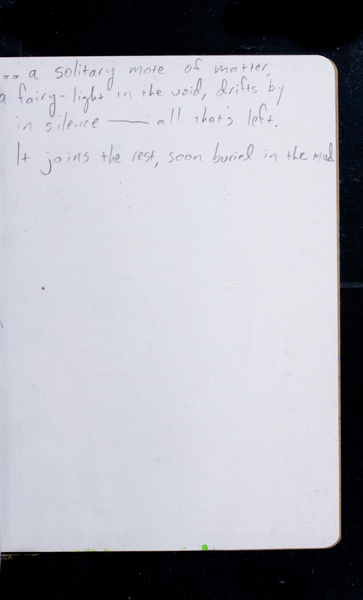 .. a solitary mote of matter,
a fairy-light in the void, drifts by
in silence — all that's left.
It joins the rest, soon buried in the mud